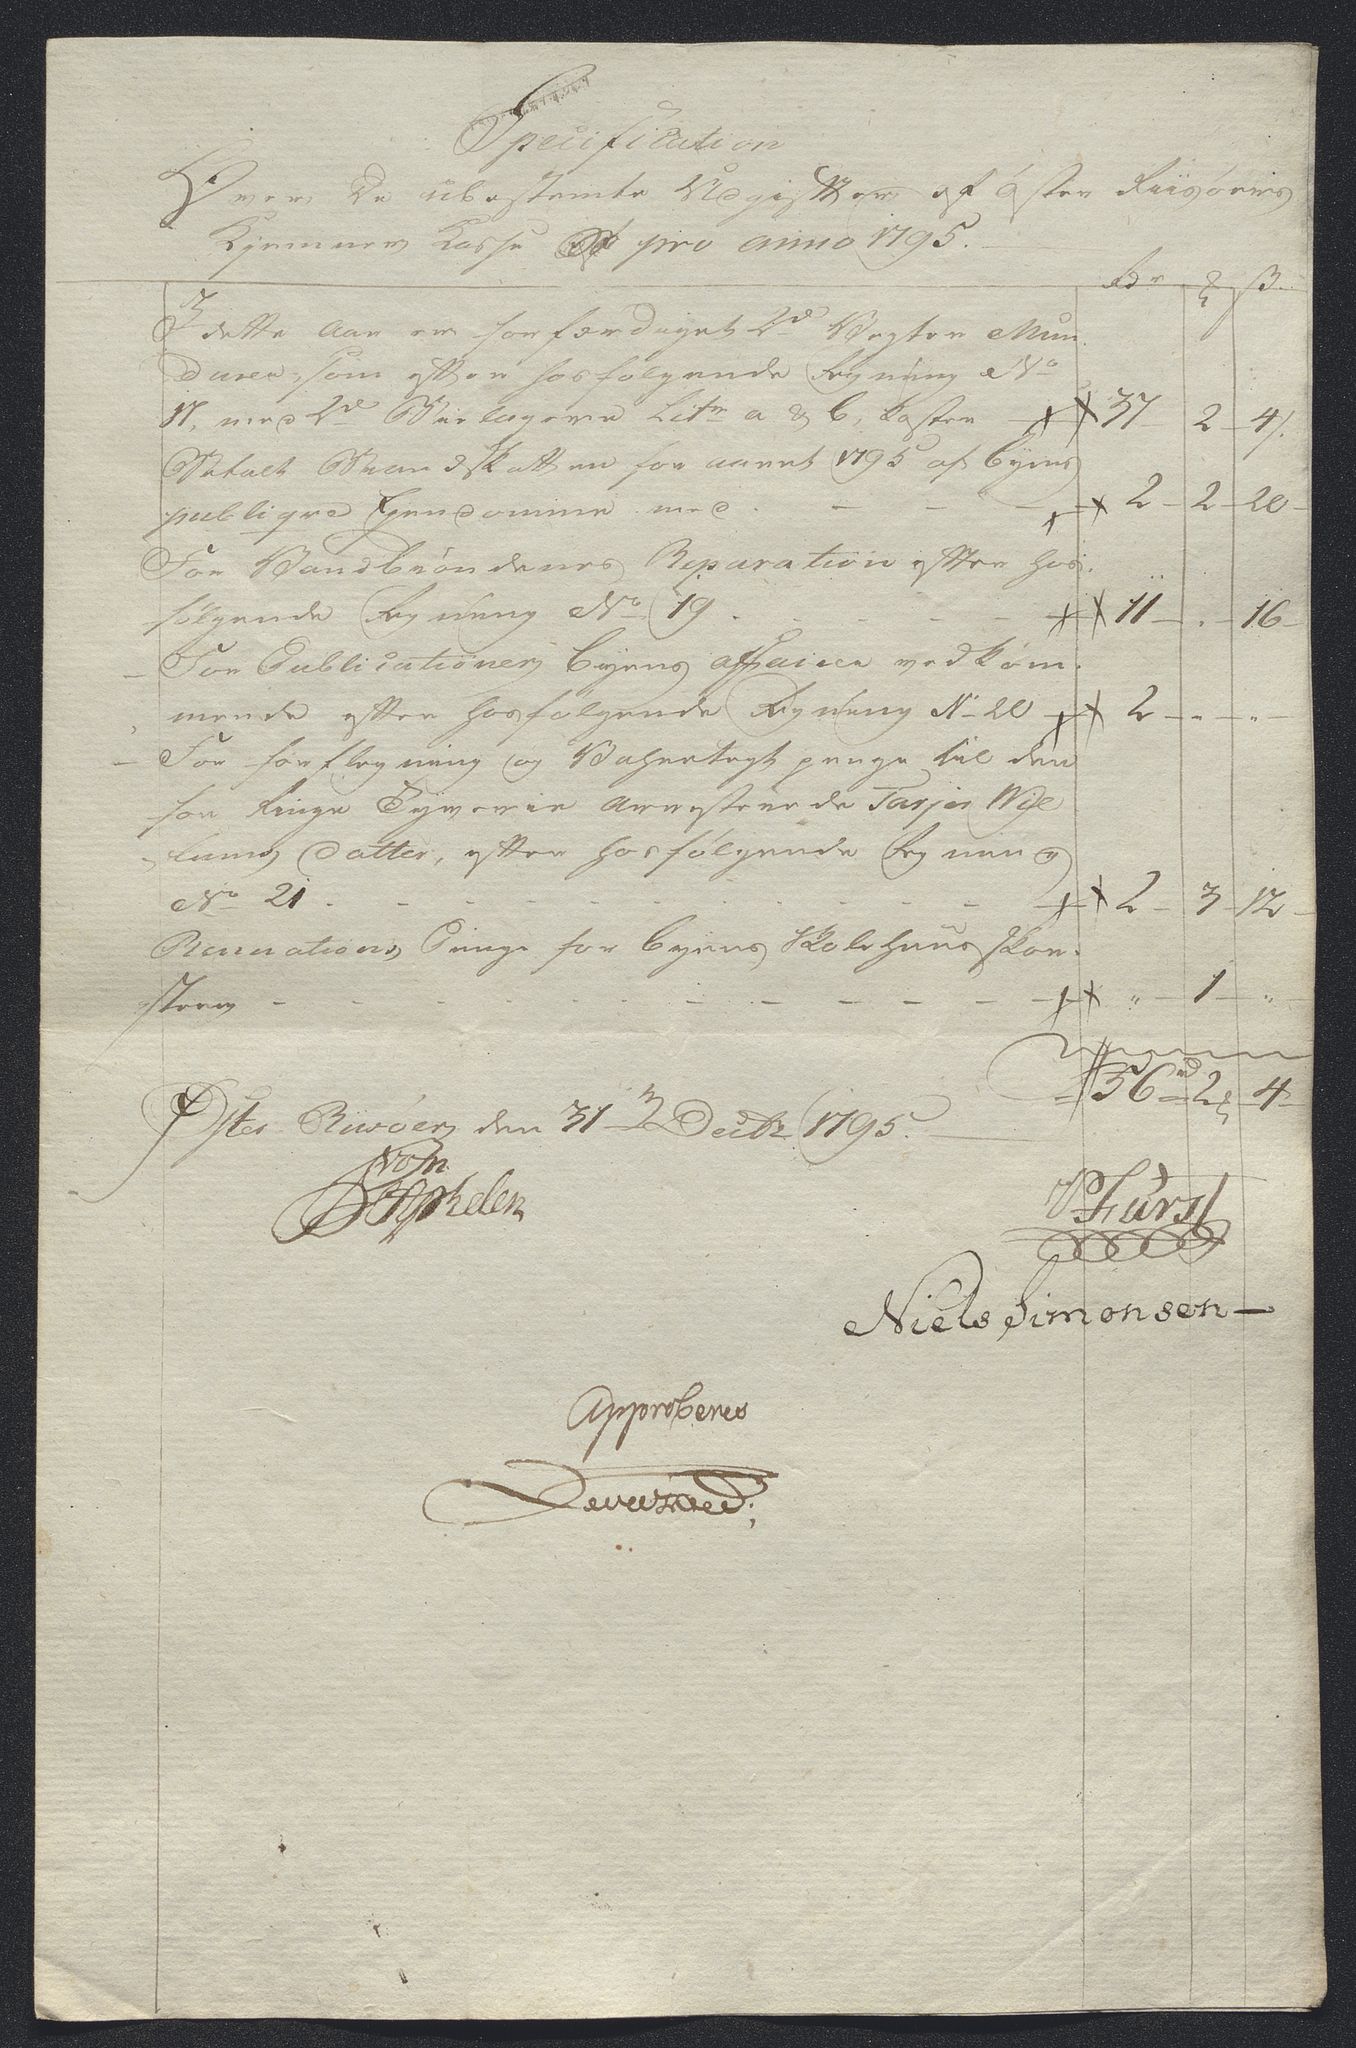 Specification
Over De ubestemte Udgifter af Öster Riisöers
Kjemner Casse pro anno 1795.
Rdr ß
I dette Aar er forfærdiget 2de Vegter Mun-
durer, som efter hosfølgende Regning No
17, med 2de Bielagerne Litr a & b, koster 37 2 4
Betalt Brandskatten for aaret 1795 af Byens
publiqve Ejendomme med - - - 2 2 20
For Vandbröndenes Reparation efter hos-
fölgende Regning No 19 - - - 11 . 16
For Publicationer Byens affairer vedkom-
mende efter hosfølgende Regning N 20 2 " "
For forflegning og Vahretegt penge til den
for Ringe Tyverie Arresterede Tarjer
datter, efter hosfølgende Regning
No 21 - - - 2 3 12
Renovations Penge for Byens Skolehuus skor-
steen - - - " 1 "
56 rd 2 4
Øster Riisöer den 31 Decbr 1795.
P Fürst
Niels Simonsen
Approberes